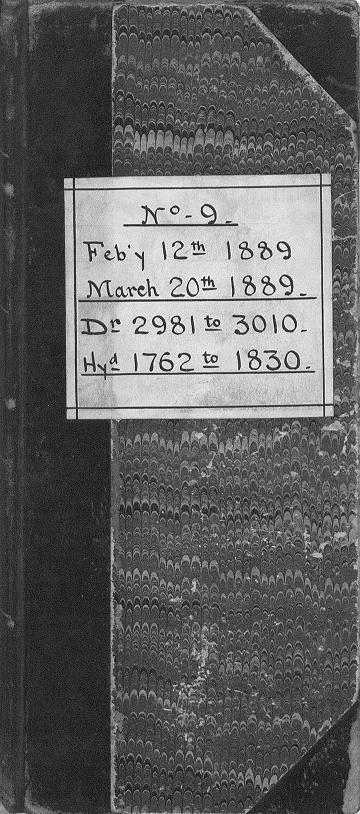 No - 9.
Feb'y 12th 1889
March 20th 1889.
Dr 2981 to 3010.
Hyd 1762 to 1830.